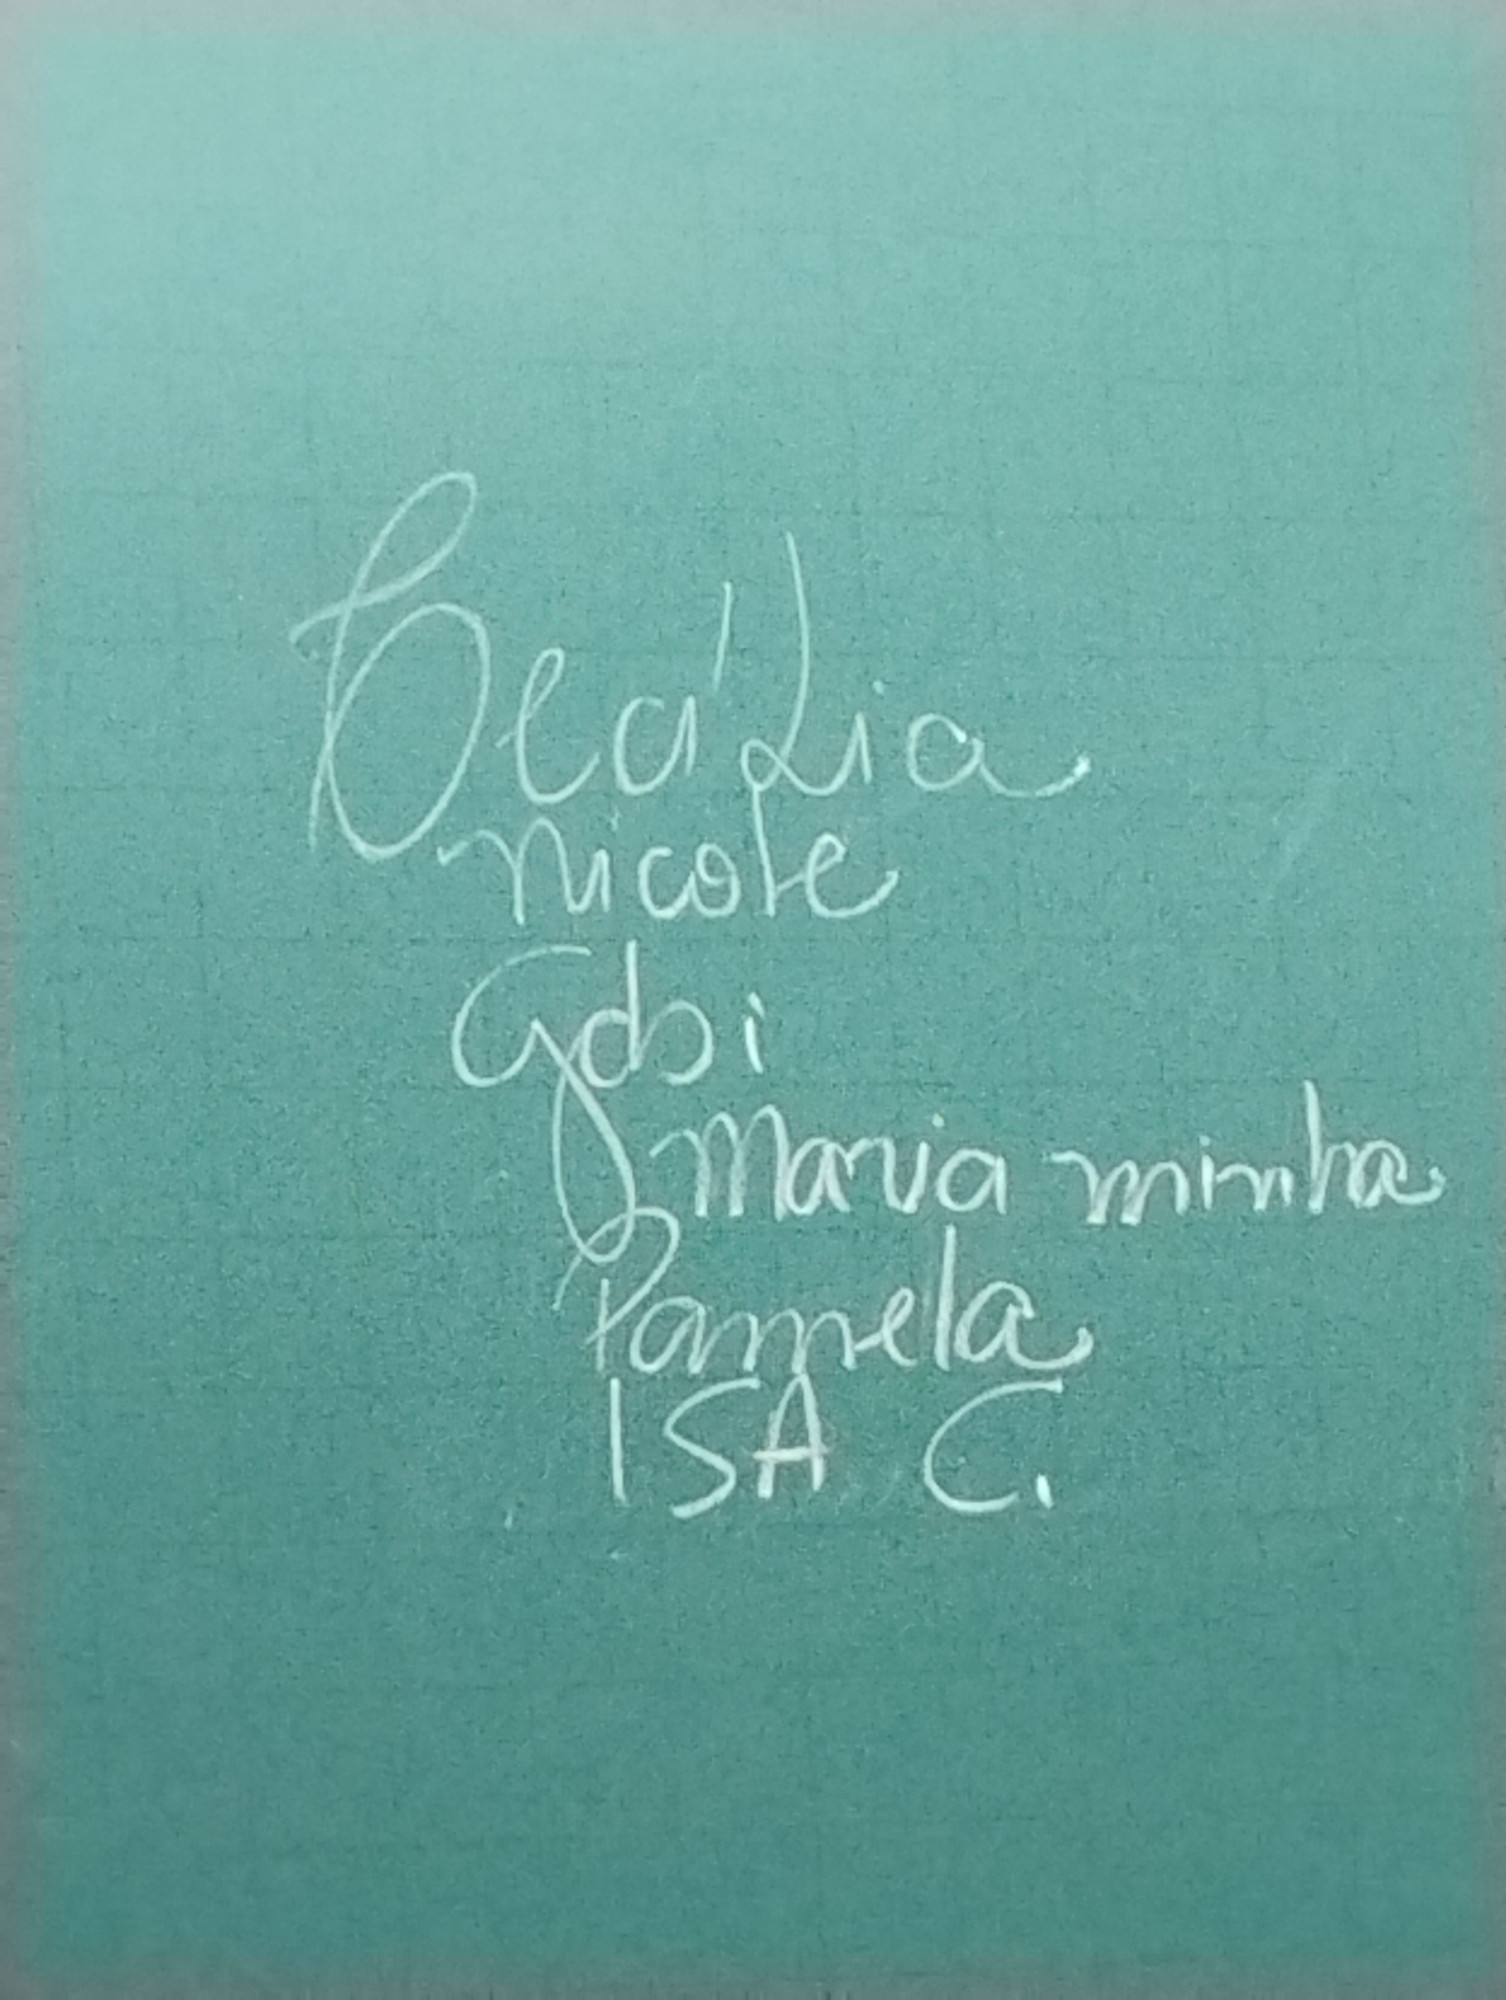 Cecília
Nicole
Gabi
Maria minha
Pamela
ISA C.